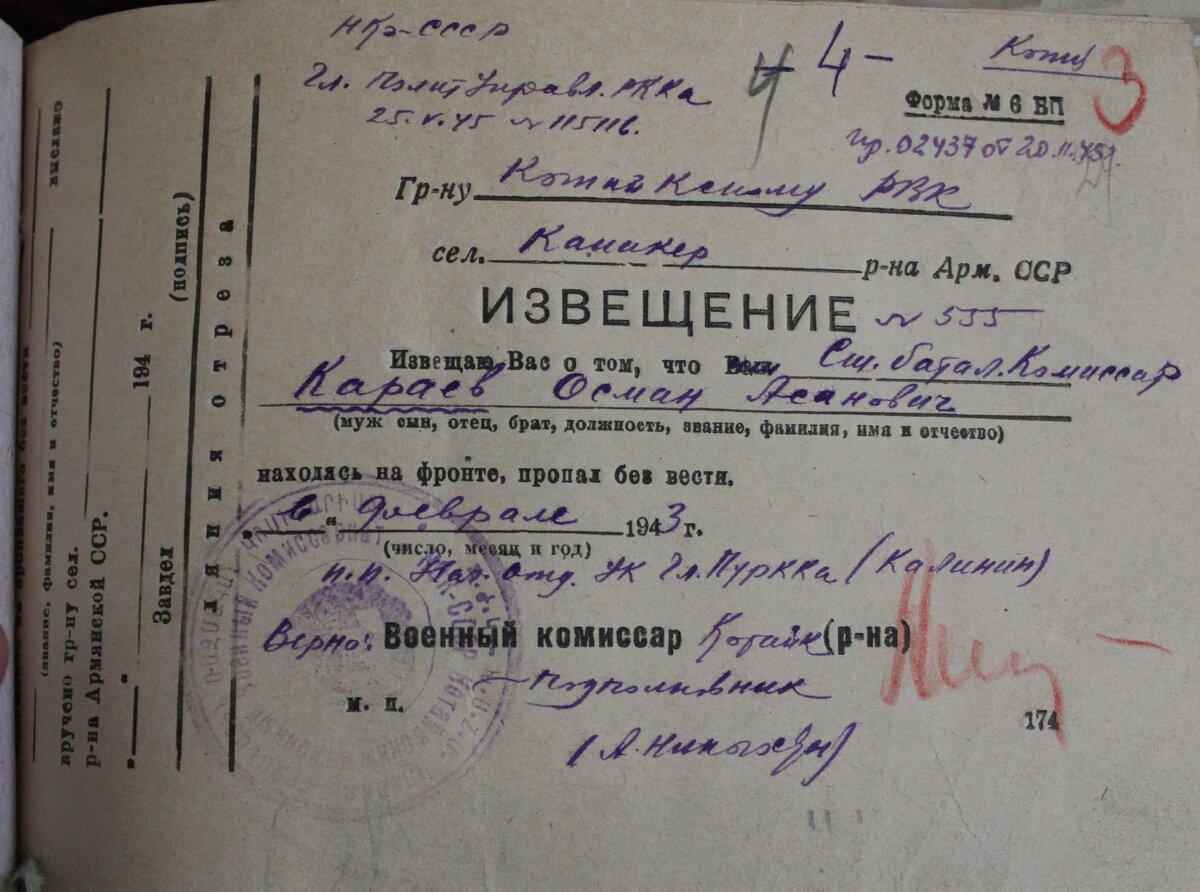 НКО-СССР
Гл. Полит Управл. РККА
25.V.45 № 115116.
4 - 4 -
Копия
3
Форма № 6 БП
пр. 02437 от 20
Гр-ну Котайкскому РВК
сел. Канакер р-на Арм. ССР
ИЗВЕЩЕНИЕ № 535
Извещаю Вас о том, что Ст. батал. Комиссар
Караев Осман Асанович
(муж сын, отец, брат, должность, звание, фамилия, имя и отчество)
находясь на фронте, пропал без вести.
„ в “ феврале 1943 г.
(число, месяц и год)
п.п. Нач. Отд. УК Гл. Пуркка (Калинин)
Верно: Военный комиссар Котайк (р-на)
Подполковник
м. п.
174
линия отреза
(подпись)
Завдел
194 г.
р-на Армянской ССР.
вручено гр-ну сел.
(звание, фамилия, имя и отчество)
выслано